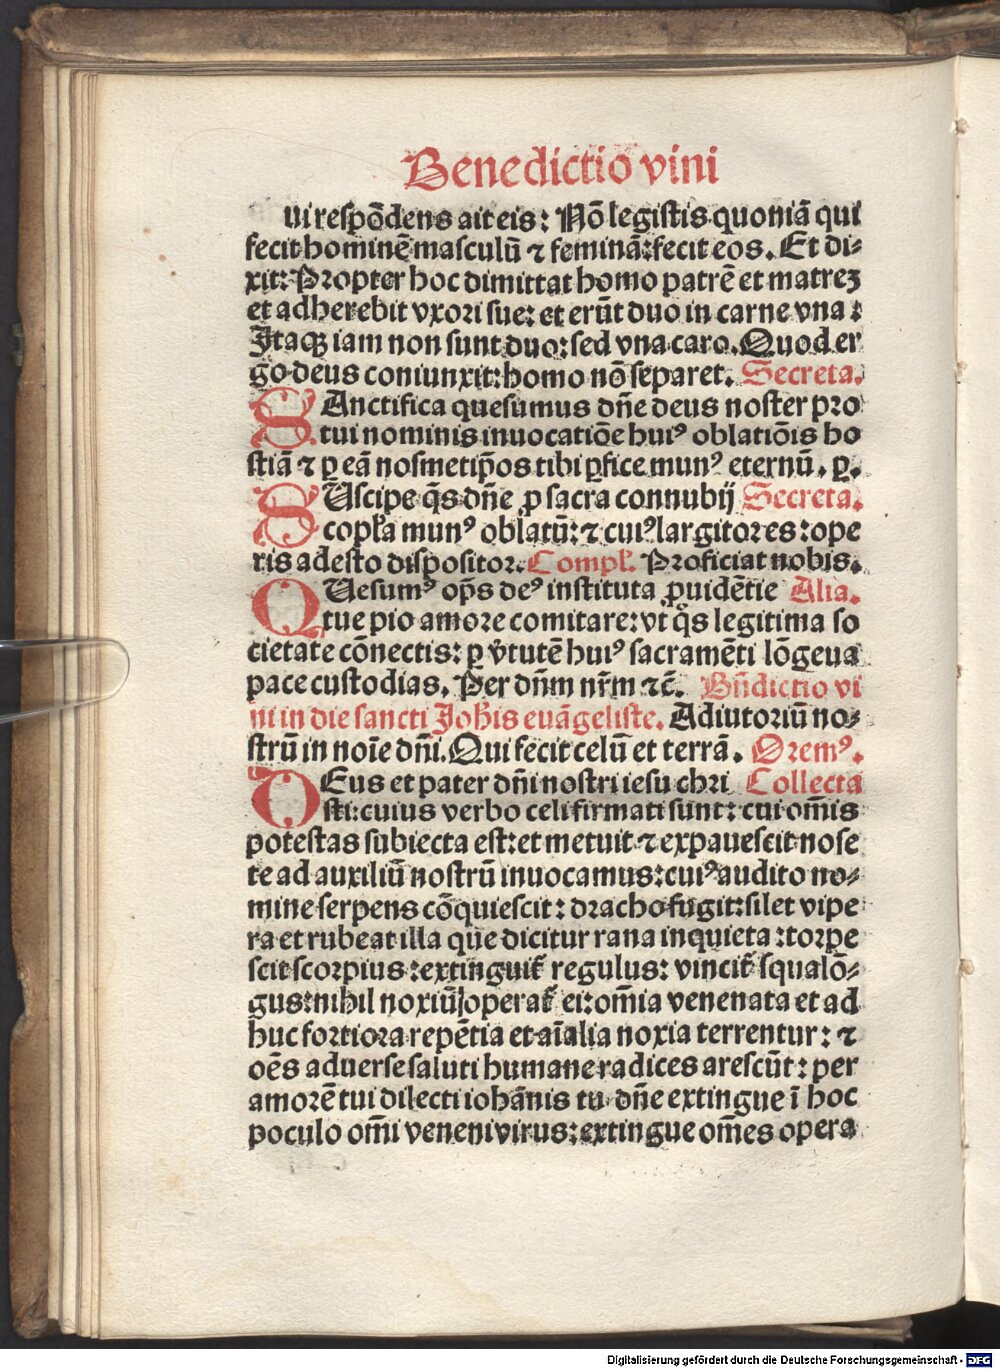 Benedictio vini
ui respōdens ait eis: Nō legistis quoniā qui
fecit hominē masculū ⁊ feminā: fecit eos. Et di-
xit: Propter hoc dimittat homo patrē et matreꝫ
et adherebit vxori sue: et erūt duo in carne vna:
Itaqꝫ iam non sunt duo: sed vna caro. Quod er
go deus coniunxit: homo nō separet. Secreta.
SAnctifica quesumus dn̄e deus noster pro
tui nominis inuocatiōe huiꝰ oblatiōis ho
stiā ⁊ ꝑ eā nosmetip̄os tibi ꝑfice munꝰ eternū. ꝑ.
SUscipe q̄s dn̄e ꝓ sacra connubij Secreta.
copl̓a munꝰ oblatū: ⁊ cuiꝰ largitor es: ope
ris adesto dispositor. Compl̓. Proficiat nobis.
QUesumꝰ op̄s deꝰ instituta ꝓuidētie Alia.
tue pio amore comitare: vt q̊s legitima so
cietate cōnectis: ꝑ v̓tutē huiꝰ sacramēti lōgeua
pace custodias. Per dn̄m nr̄m ⁊c̄. Bn̄dictio vi
ni in die sancti Joh̄is euāgeliste. Adiutoriū no-
strū in noīe dn̄i. Qui fecit celū et terrā. Oremꝰ.
DEus et pater dn̄i nostri iesu chri Collecta
sti: cuius verbo celi firmati sunt: cui om̄is
potestas subiecta est: et metuit ⁊ expauescit nose
te ad auxiliū nostrū inuocamus: cuiꝰ audito no-
mine serpens cōquiescit: dracho fugit: silet vipe
ra et rubeat illa que dicitur rana inquieta: torpe
scit scorpius: extinguit̓ regulus: vincit̓ squalō-
gus: nihil noxiū operat̓ ei: om̄ia venenata et ad
huc fortiora repētia et aīalia noxia terrentur: ⁊
oēs aduerse saluti humane radices arescūt: per
amorē tui dilecti iohānis tu dn̄e extingue ī hoc
poculo om̄i veneni virus: extingue om̄es opera
Digitalisierung gefördert durch die Deutsche Forschungsgemeinschaft - DFG